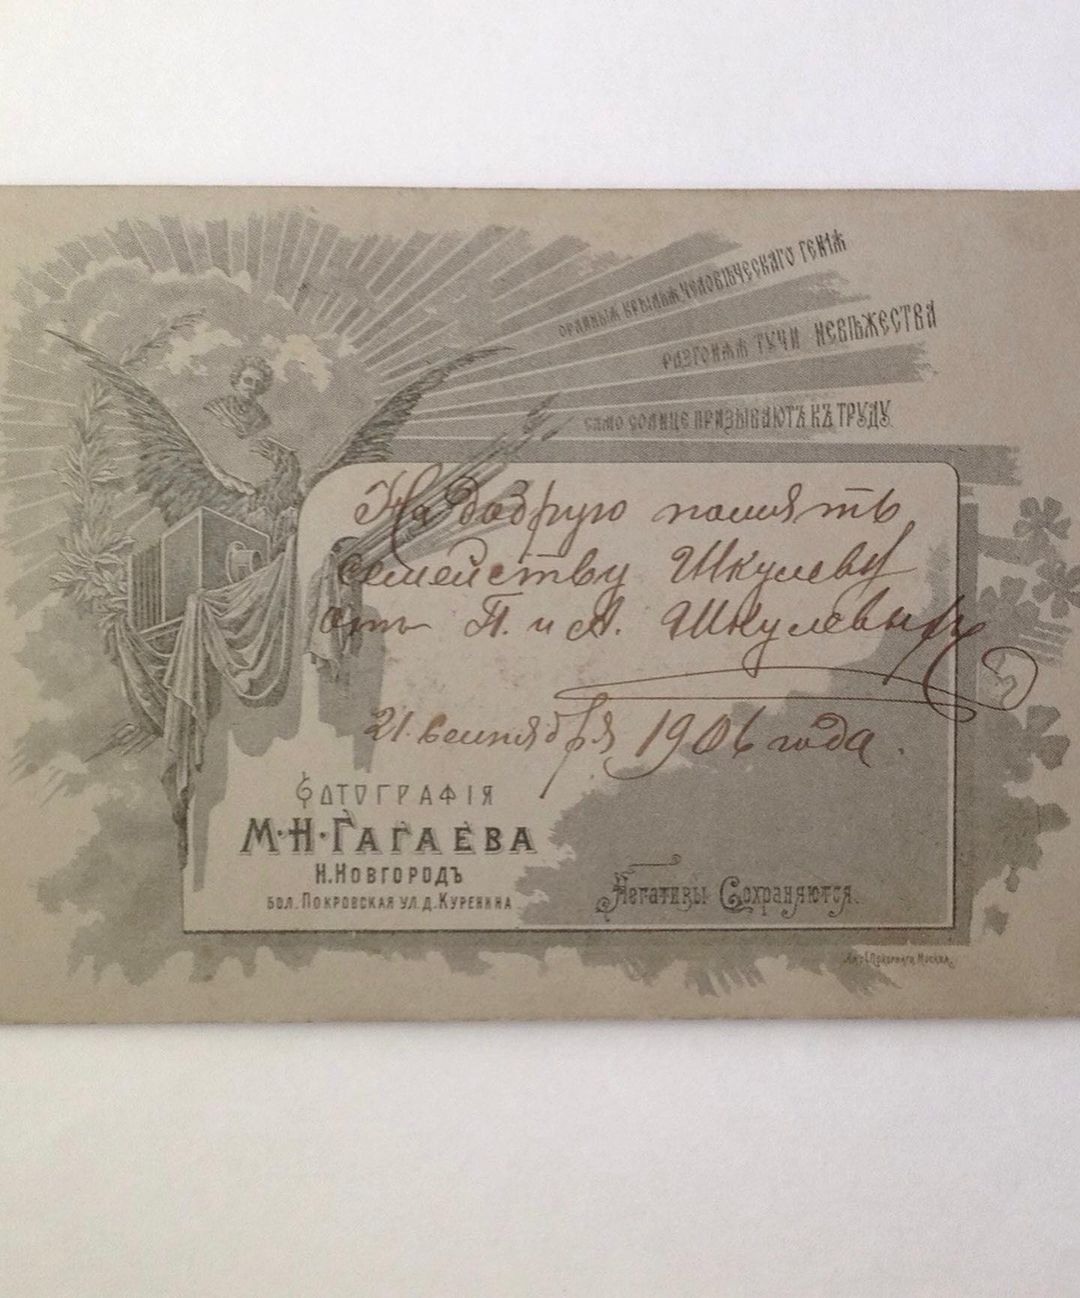 ОРЛИНЫЯ КРЫЛЬЯ ЧЕЛОВѢЧЕСКАГО ГЕНІЯ
РАЗГОНЯЯ ТУЧИ НЕВѢЖЕСТВА
САМО СОЛНЦЕ ПРИЗЫВАЮТЪ КЪ ТРУДУ.
На добрую память
семейству Шкулеву
отъ П. и А. Шкулевыхъ
21. сентября 1906 года.
ФОТОГРАФІЯ
М·Н·ГАГАЕВА
Н.НОВГОРОДЪ
БОЛ. ПОКРОВСКАЯ УЛ. Д. КУРЕНИНА
Негативы Сохраняются.
Покорнаго, Москва.